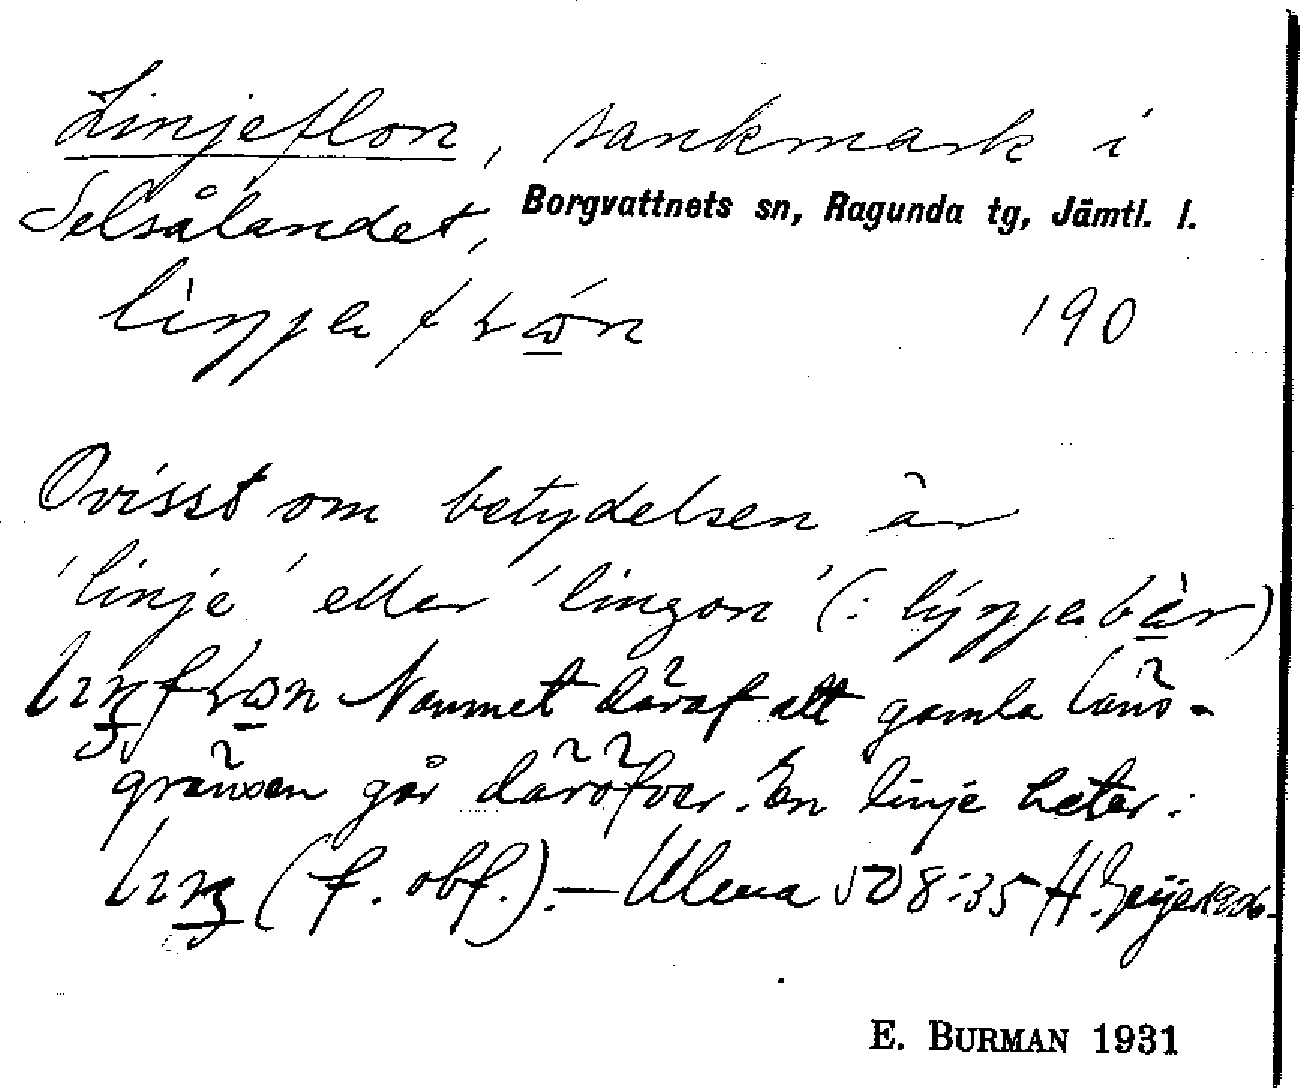 Linjeflon, sankmark i
Selsålandet, Borgvattnets sn, Ragunda tg, Jämtl. l.
190
Ovisst om betydelsen är
'linje' eller 'lingon' (:
Namnet däraf att gamla läns-
gränsen går däröfver. En linje heter:
(f. obf.). — Ulena 508:35 H. Geijer 1906.
E. BURMAN 1931